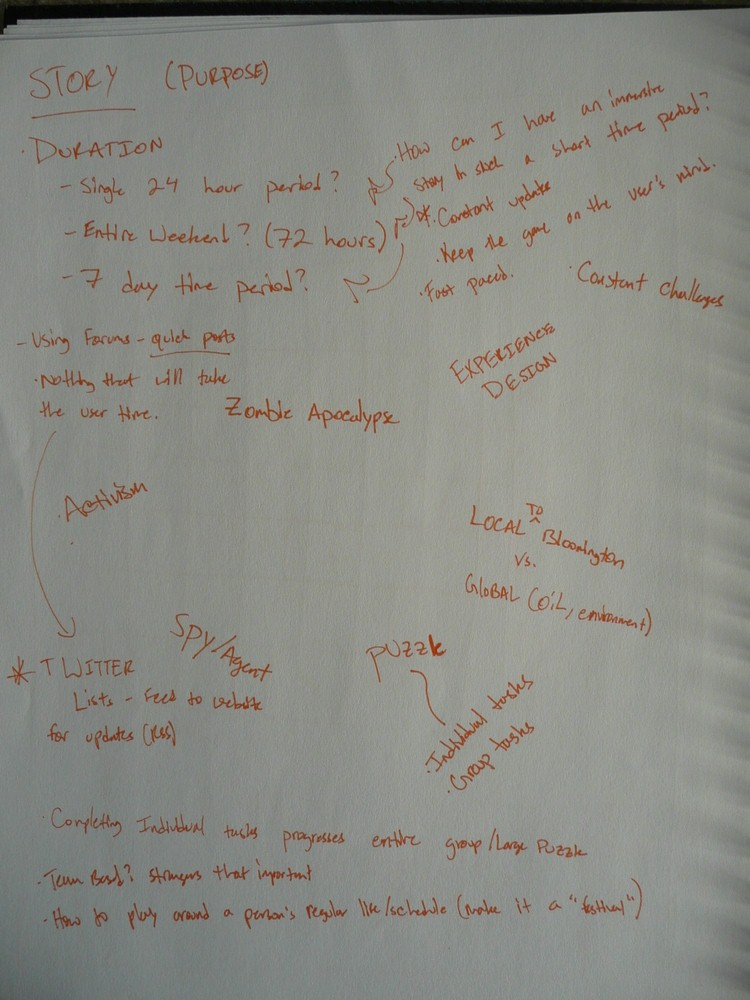 STORY (PURPOSE)
· DURATION
- Single 24 hour period?
- Entire Weekend? (72 hours)
- 7 day time period?
· How can I have an immersive
story in such a short time period?
* · Constant updates
· Keep the game on the user's mind.
· Fast paced.
· Constant challenges
- Using Forums - quick posts
· Nothing that will take
the user time.
Zombie Apocalypse
EXPERIENCE
DESIGN
· Activism
LOCAL TO Bloomington
vs.
GLOBAL (OIL, environment)
* TWITTER
Lists - Feed to website
for updates (RSS)
SPY/Agent
PUZZLE
· Individual tasks
· Group tasks
· Completing Individual tasks progresses entire group/Large Puzzle
· Team Based? strangers that important
· How to play around a person's regular life/schedule (make it a "festival")